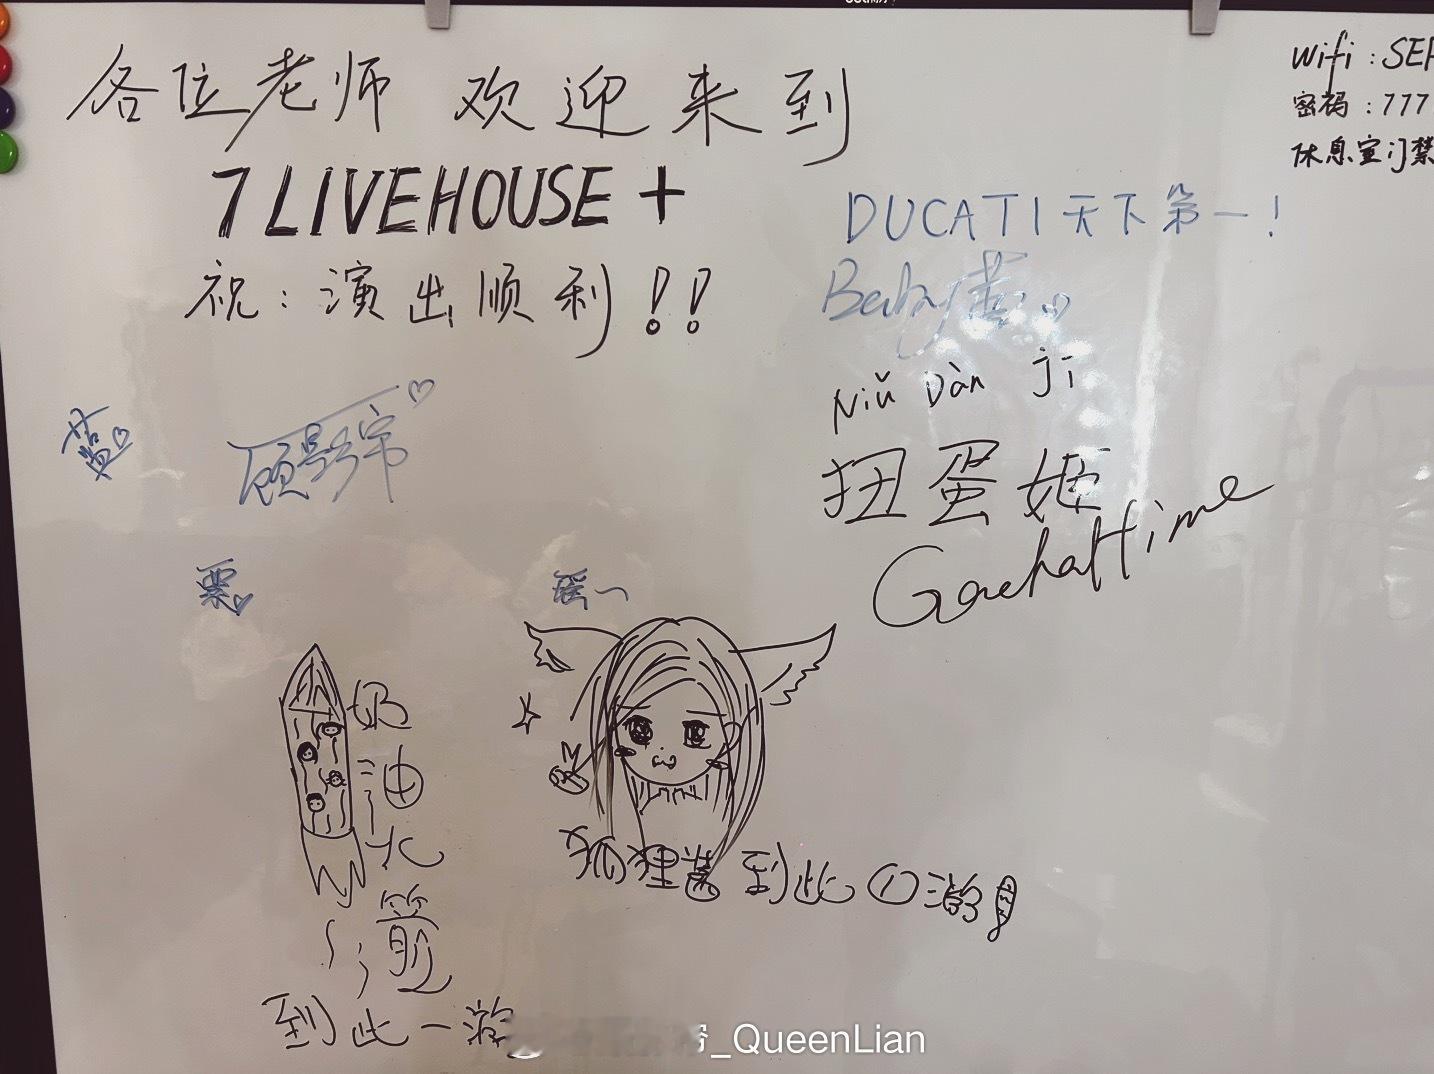 各位老师 欢迎来到
7 LIVEHOUSE +
祝：演出顺利！！
wifi：SE
密码：777
休息室门禁
DUCATI天下第一！
Baby
Niǔ Dàn jī
扭蛋姬
Gachattime
蓝♡
顾影
栗♡
瑶一
奶油火箭
到此一游
狐狸酱到此①游
_QueenLian